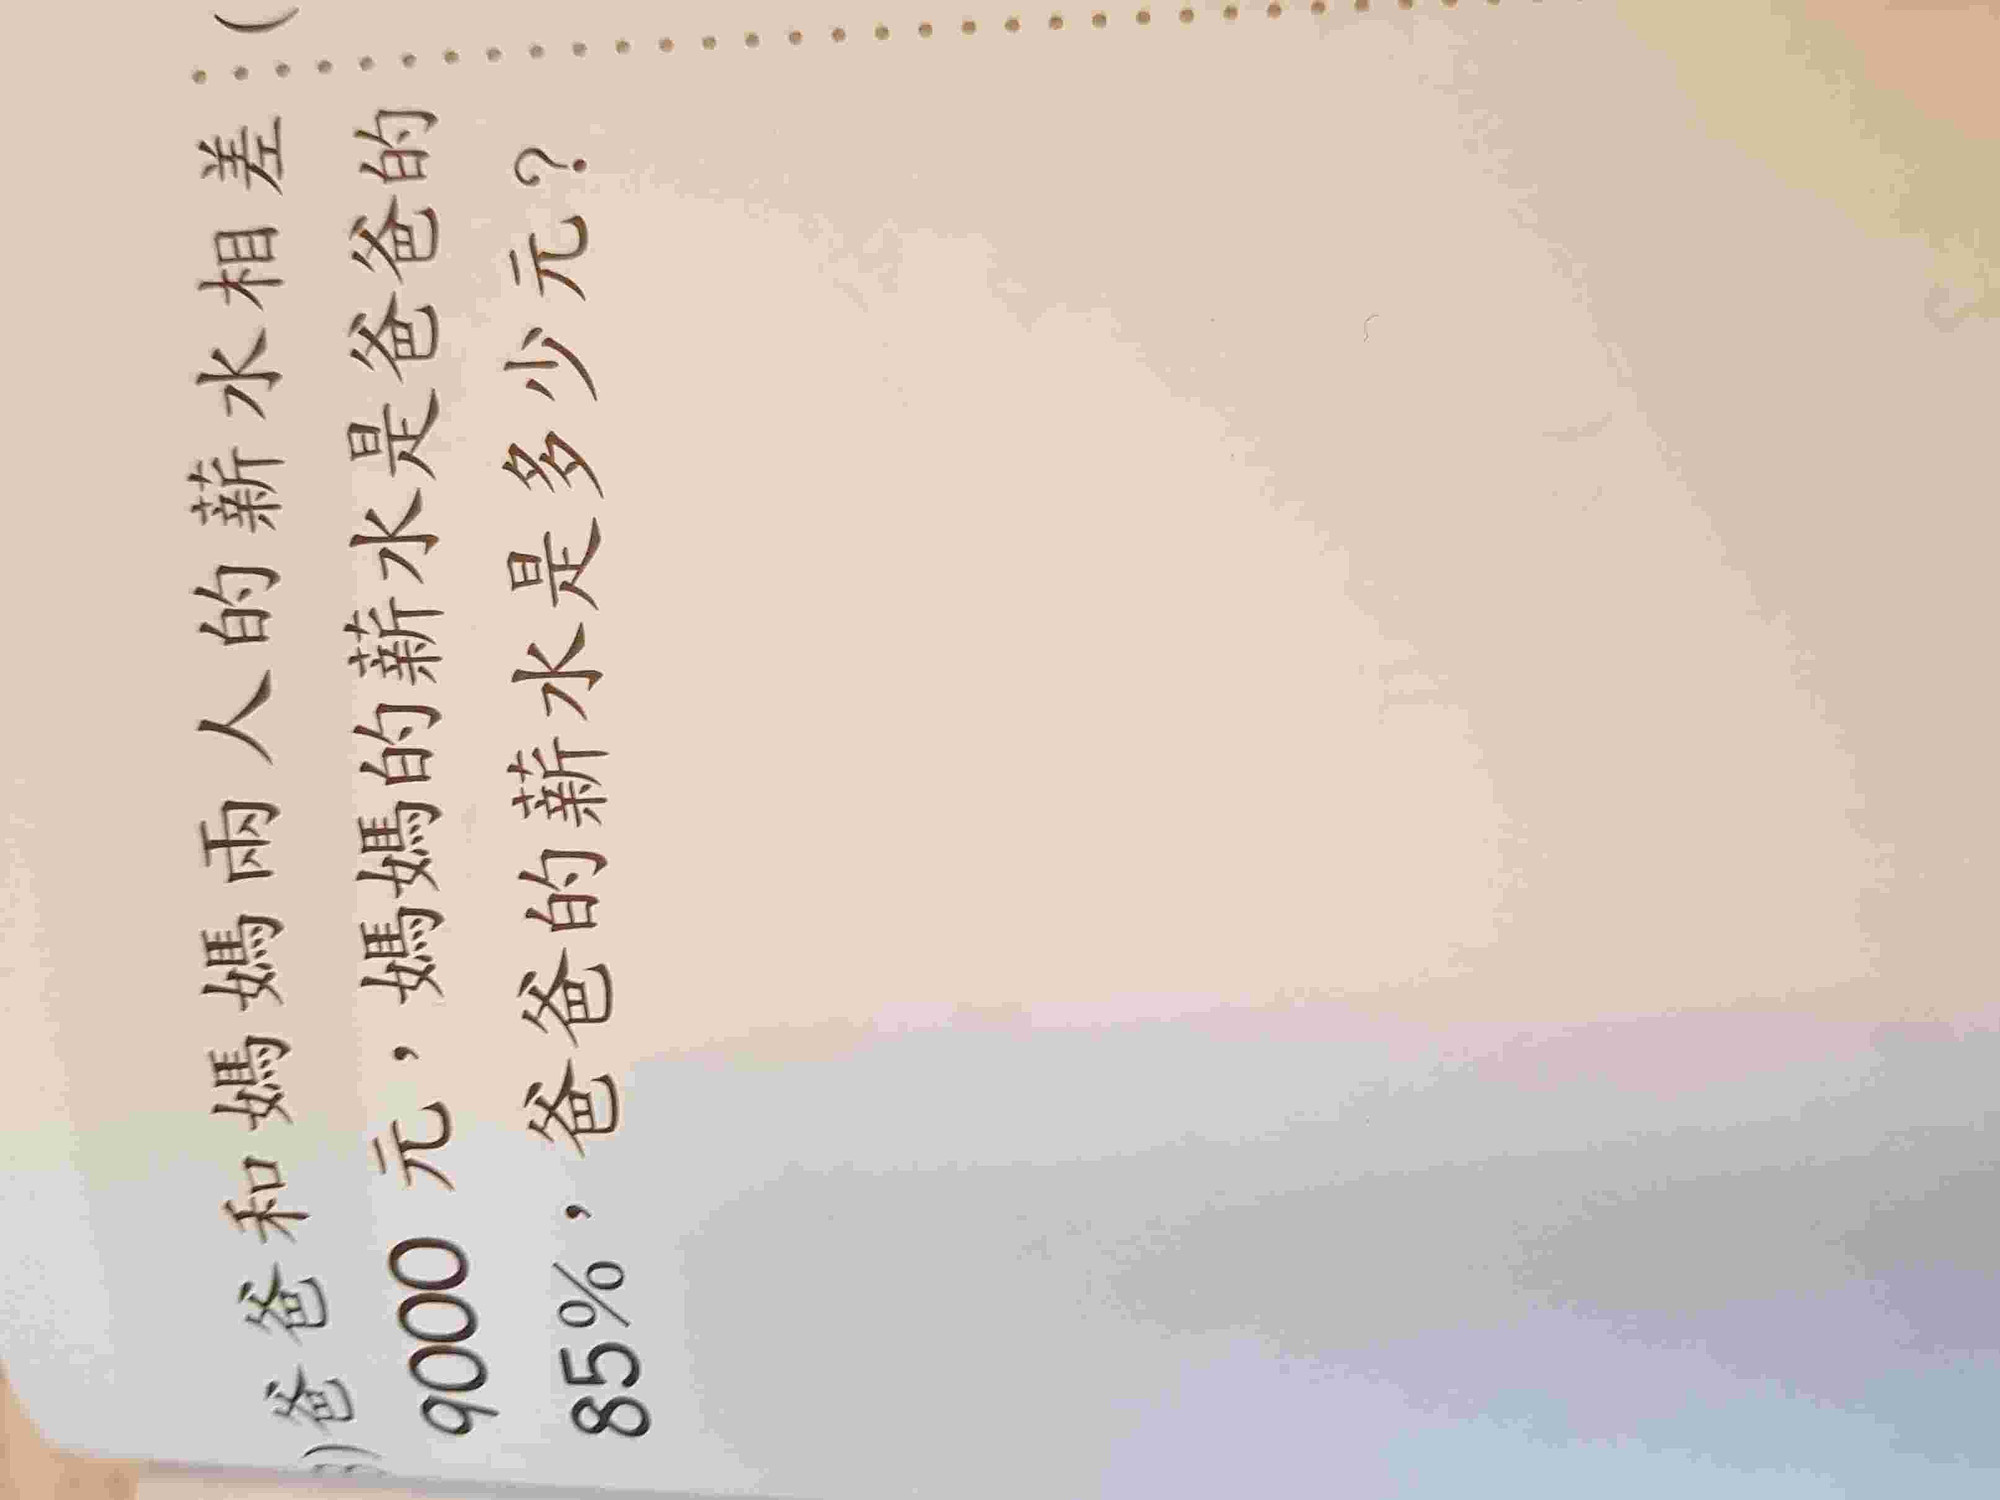 )爸爸和媽媽兩人的薪水相差
9000 元，媽媽的薪水是爸爸的
85%，爸爸的薪水是多少元？
(